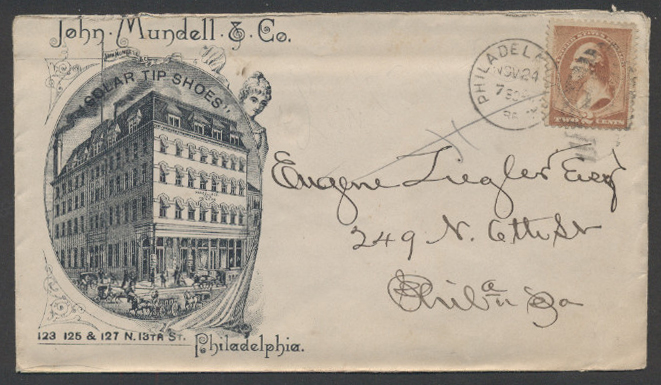 John Mundell & Co.
"SOLAR TIP SHOES"
PHILADEL
NOV 24
TWO CENTS
Eugene Ziegler Esq
249 N. 6th St
Phila Pa
123 125 & 127 N. 13TH ST.
Philadelphia.